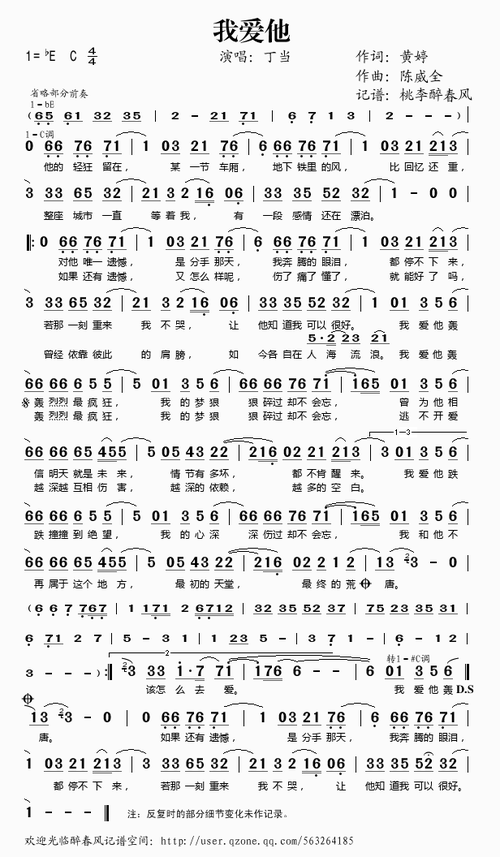 我爱他
1= ♭E C 4/4
演唱：丁当
作词：黄婷
作曲：陈威全
记谱：桃李醉春风
省略部分前奏
1-bE
( 65 61 32 35 | 2 - 21 71 | 6 7 1 3 | 2 - - - )
1-C调
0 66 76 71 | 1 03 21 76 | 6 66 76 71 | 1 03 21 213
他的 轻狂 留在， 某 一节 车厢， 地下 铁里 的风， 比 回忆 还 重，
3 33 65 32 | 21 3 2 16 06 | 33 35 52 32 | 1 - 0 0
整座 城市 一直 等着我， 有 一段 感情 还在 漂泊。
‖: 0 66 76 71 | 1 03 21 76 | 6 66 76 71 | 1 03 21 213
对他 唯一 遗憾， 是 分手 那天， 我奔 腾的 眼泪， 都 停不 下 来，
如果 还有 遗憾， 又 怎么 样呢， 伤了 痛了 懂了， 就 能好 了 吗，
3 33 65 32 | 21 3 2 16 06 | 33 35 52 32 | 1 01 3 5 6
若那 一刻 重来 我 不 哭， 让 他知 道我 可以 很好。 我 爱 他 轰
5·2 23 53
曾经 依靠 彼此 的 肩膀， 如 今各 自在 人 海 流 浪。 我 爱 他 轰
66 66 6 5 5 | 5 01 3 5 6 | 66 66 76 71 | 1165 01 3 5 6
轰 烈烈 最 疯 狂， 我 的 梦 狠 狠 碎过 却不 会忘， 曾 为 他 相
轰 烈烈 最 疯 狂， 我 的 梦 狠 狠 碎过 却不 会忘， 逃 不 开 爱
1-3
66 66 65 455 | 5 05 43 22 | 216 02 21 213 | 3 01 3 5 6
信 明天 就是 未 来， 情 节有 多坏， 都 不肯 醒 来。 我 爱 他 跌
越 深越 互相 伤 害， 越 深的 依赖， 越 多的 空 白。
66 66 6 5 5 | 5 01 3 5 6 | 66 66 76 71 | 1165 01 3 5 6
跌 撞撞 到 绝 望， 我 的 心 深 深 伤过 却不 会忘， 我 和 他 不
66 66 65 455 | 5 05 43 22 | 216 02 21 2 12 | 13 3 - 0
再 属于 这个 地 方， 最 初的 天堂， 最 终的 荒 唐。
( 6 6 7 767 | 1 171 2 6712 | 32 35 52 37 | 75 23 52 35
6 71 2 7 | 5 - 3 5 | 1 23 5 | 3 - - 6
2
3 - - ) :‖ 3 33 1·7 71 | 176 6 - - | 6 01 3 5 6 ‖
转1-#C调
该怎 么 去 爱。 我 爱 他 轰 D.S
13 3 - 0 | 0 66 76 71 | 1 03 21 76 | 6 66 76 71
唐。 如果 还有 遗憾， 是 分手 那天， 我奔 腾的 眼泪，
1 03 21 213 | 3 33 65 32 | 21 3 2 16 06 | 33 35 52 32
都 停不 下 来， 若那 一刻 重来 我 不哭， 让 他知 道我 可以 很好
1 - - - ‖ 注：反复时的部分细节变化未作记录。
欢迎光临醉春风记谱空间：http://user.qzone.qq.com/563264185